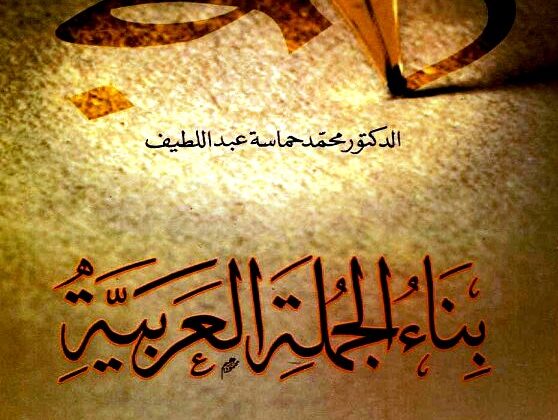 الدكتور محمّد حماسة عبد اللطيف
بِنَاءُ الجُملَةِ العَرَبيَّةِ